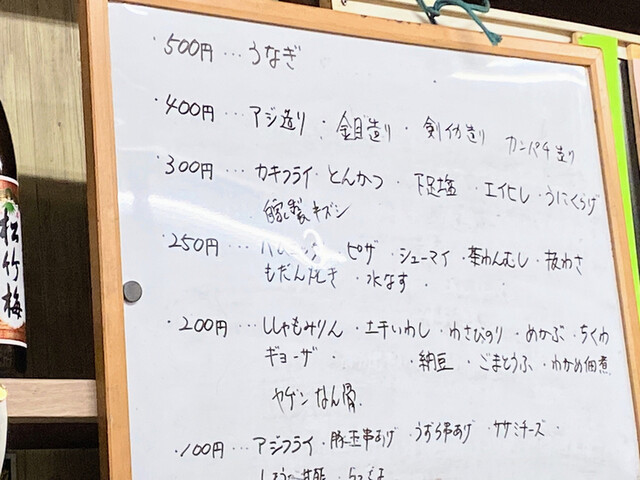 ・500円 … うなぎ
・400円 … アジ造り ・ 金目造り ・ 剣イカ造り カンパチ造り
・300円 … カキフライ ・ とんかつ ・ 下足塩 ・ エイヒレ ・ うにくらげ
自家製キズシ
・250円 … ピザ ・ シューマイ ・ 茶わんむし ・ 板わさ
もだん焼き ・ 水なす ・
・200円 … ししゃもみりん ・ 土干いわし ・ わさびのり ・ めかぶ ・ ちくわ
ギョーザ ・ ・ 納豆 ・ ごまとうふ ・ わかめ佃煮
ヤゲンなん骨
・100円 … アジフライ ・ 豚玉串あげ ・ うずら串あげ ・ ササミチーズ
松竹梅